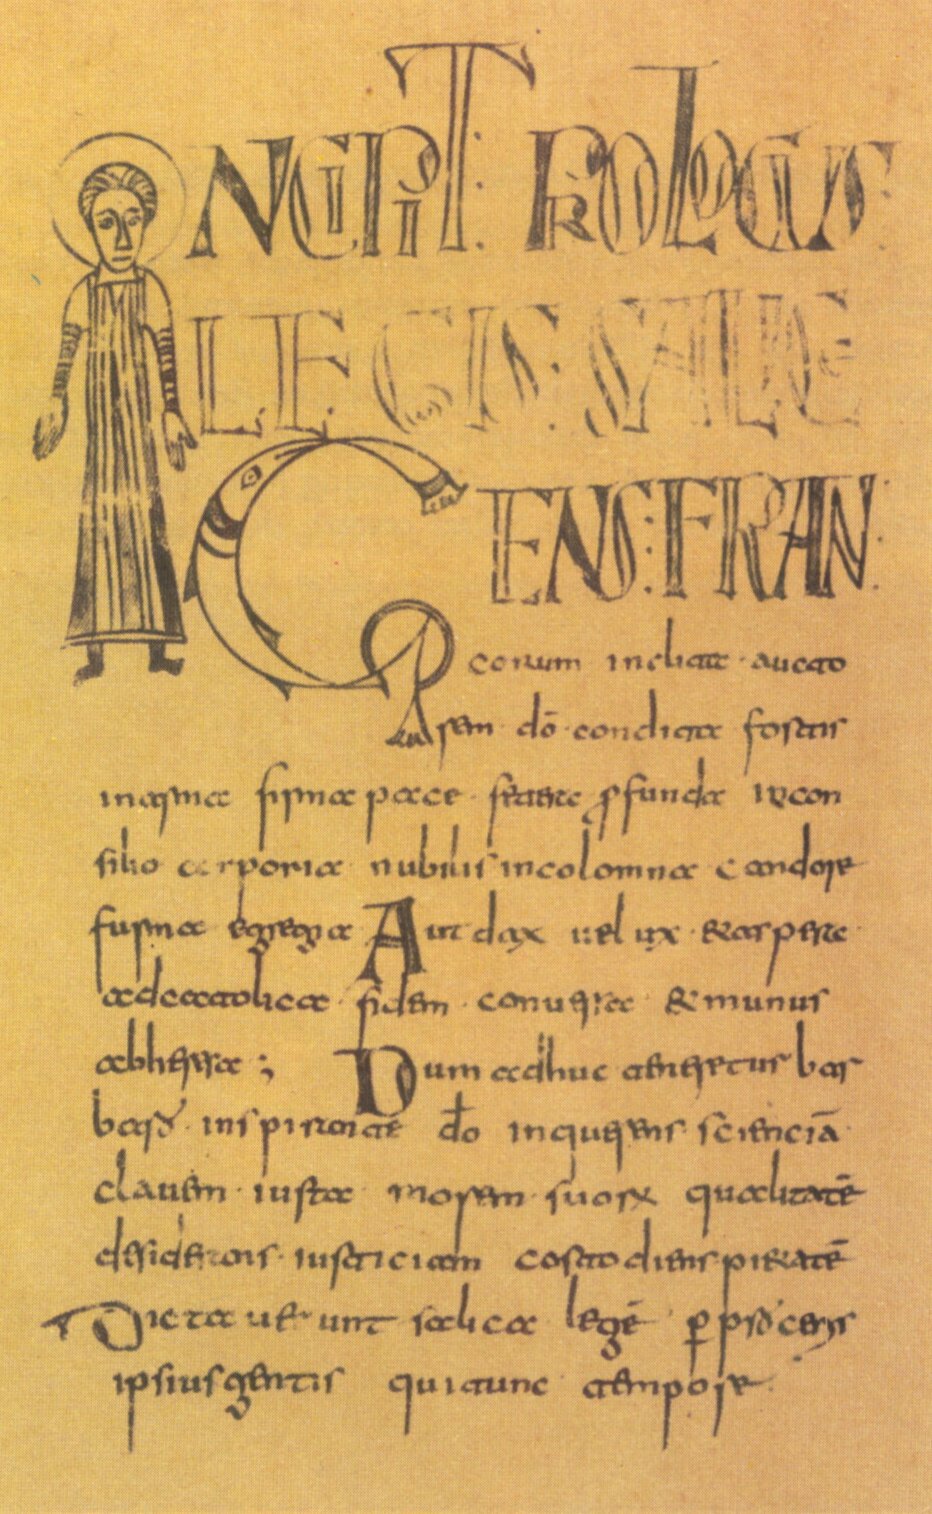 INCIPIT PROLOGUS
LE GIS SALICE
GENS FRAN
corum inclita aucto
rem dō condita fortis
in arma firma pace fetere ꝓfunda in con
silio corporia nubilis incolomna candore
forma egregia Audax uelux & aspera
ad catolica fidem conuersa & munus
ab heresa ; Dum adhuc teneretur bar
bara inspirante dō inquerens scienciā
clauem iusta morem suorꝝ qualitatē
desiderans iusticiam costodiens pietatē
Dictauerunt salica legē ꝑ proceris
ipsius gentis qui tunc tempore